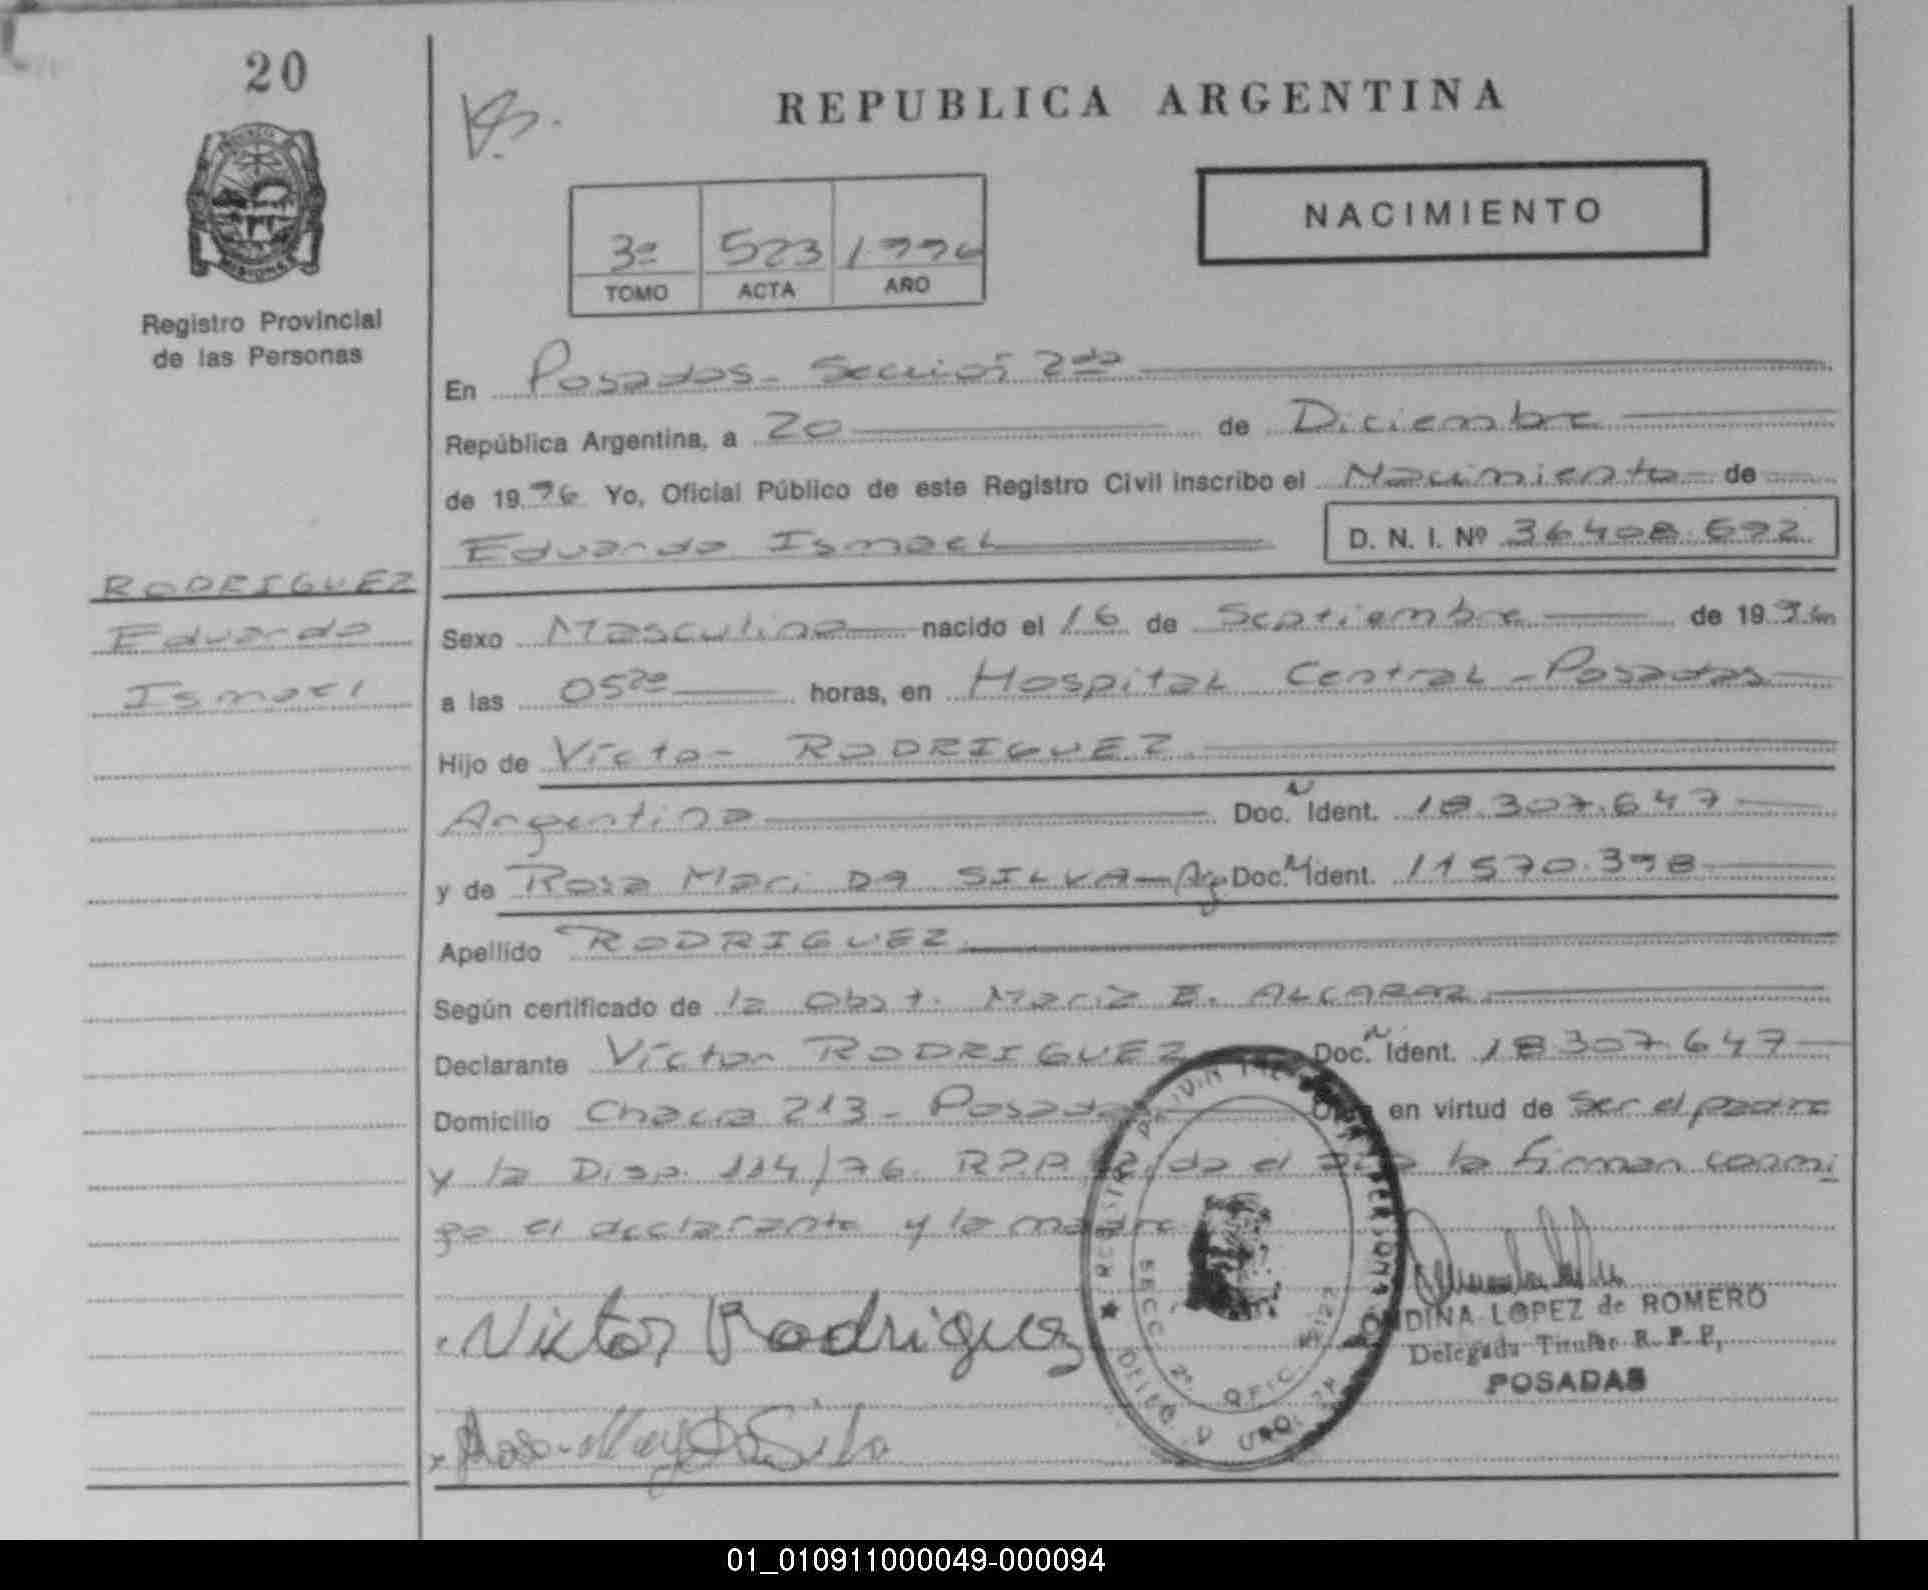 20
REPUBLICA ARGENTINA
NACIMIENTO
3º 523 1996
TOMO ACTA AÑO
Registro Provincial
de las Personas
En Posadas - Sección 2da
República Argentina, a 20 de Diciembre
de 1996 Yo, Oficial Público de este Registro Civil inscribo el Nacimiento de
Eduardo Ismael D. N. I. Nº 36408.692
RODRIGUEZ
Eduardo
Ismael
Sexo Masculino nacido el 16 de Septiembre de 1996
a las 05 horas, en Hospital Central - Posadas
Hijo de Víctor RODRIGUEZ
Argentina Doc. N Ident. 18.307.647
y de Rosa Mari DA SILVA - Arg. Doc. N Ident. 11570.398
Apellido RODRIGUEZ
Según certificado de la Obst. María E. ALCARAZ
Declarante Víctor RODRIGUEZ Doc. N Ident. 18307.647
Domicilio Chacra 213 - Posadas en virtud de ser el padre
y la Disp. 114/76. R.P.P. el acta la firman conmi
go el declarante y la madre
Victor Rodriguez
SECC 2ª OFIC
DINA LOPEZ de ROMERO
Delegada Titular R. P. P.
POSADAS
Rosa Mary Da Silva
01_010911000049-000094